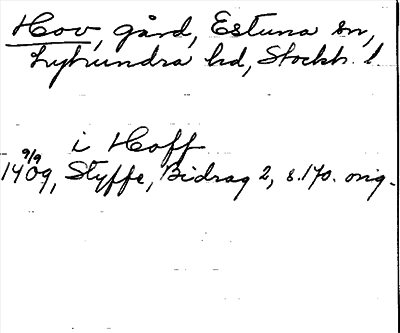 Hov, gård, Estuna sn,
Lyhundra hd, Stockh. l.
i Hoff
9/9
1409, Styffe, Bidrag 2, s. 170. orig.